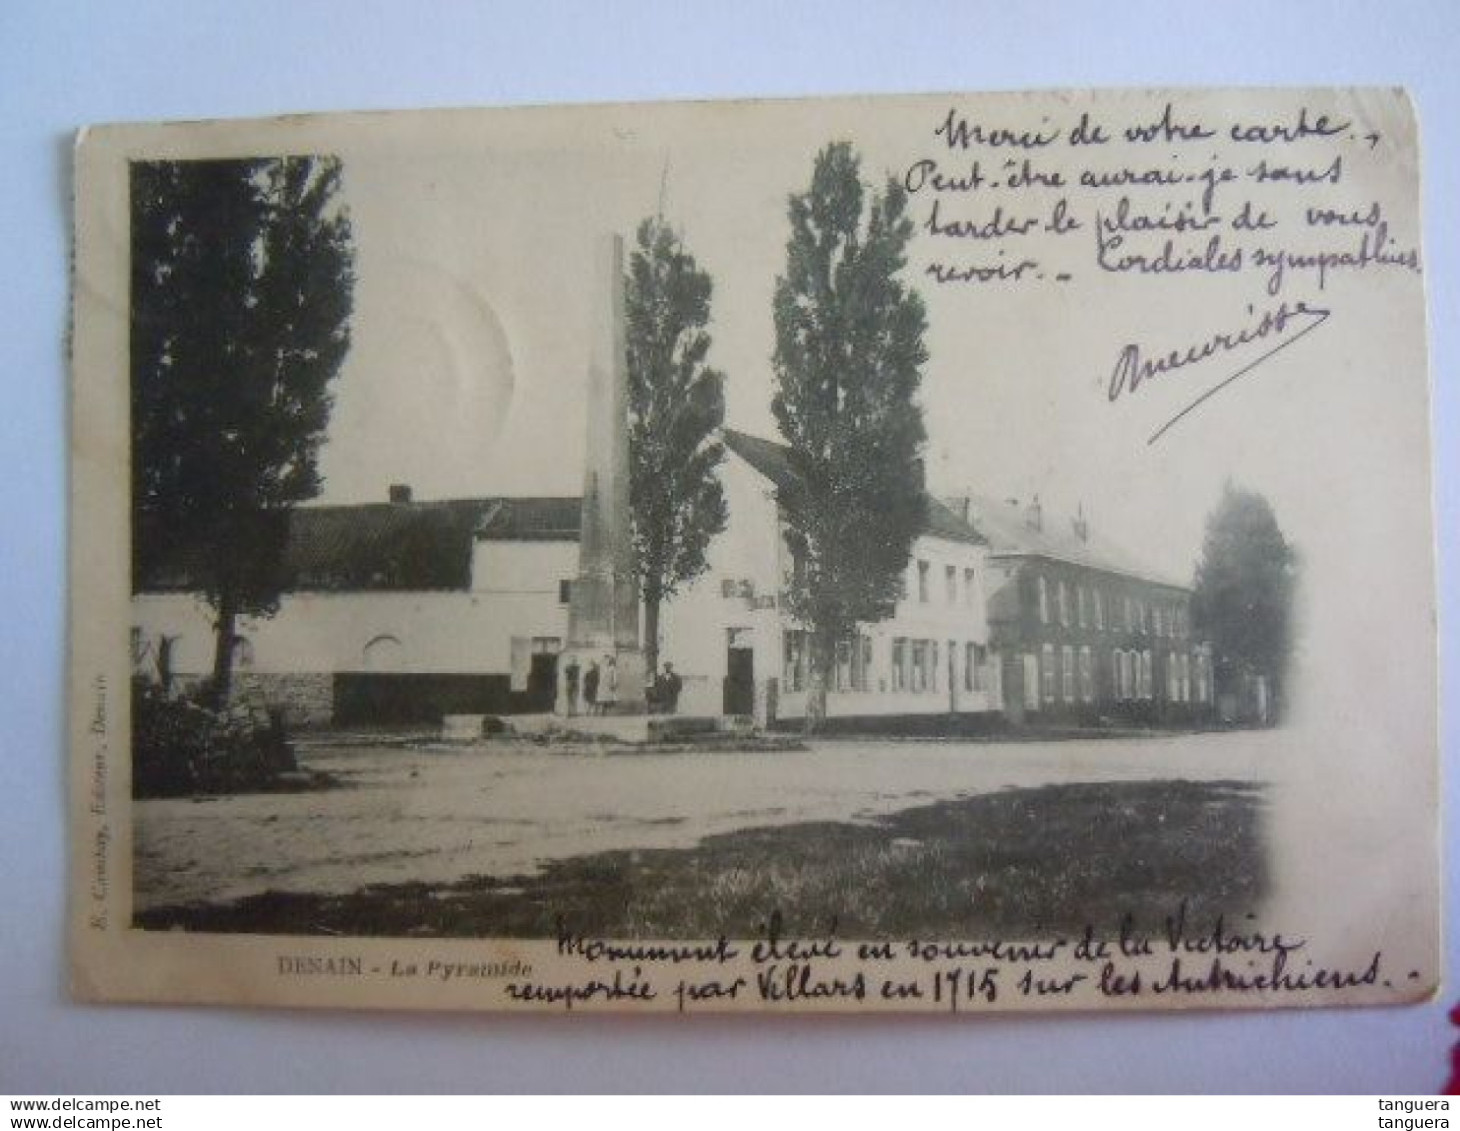 Merci de votre carte.,
Peut-être aurai-je sans
tarder le plaisir de vous
revoir. - Cordiales sympathies.
E. Cambay, Editeur, Denain
DENAIN - La Pyramide
Monument élevé en souvenir de la Victoire
remportée par Villars en 1715 sur les Autrichiens. -
tanguera
tanguera
tanguera
tanguera